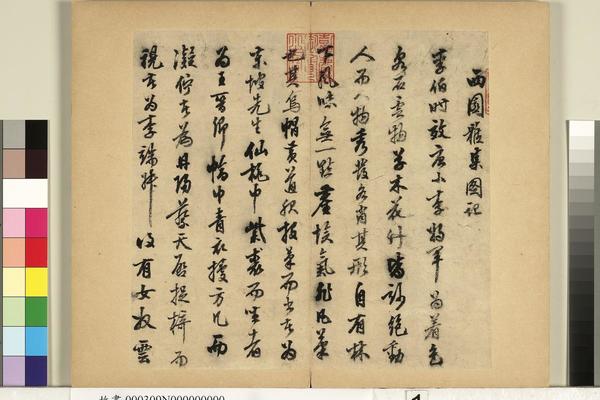 西園雅集圖記
李伯時效唐小李將軍為著色
泉石雲物草木花竹皆妙絕動
人而人物秀發各肖其形自有林
下風味無一點塵埃氣非凡筆
也其烏帽黃道服捉筆而書者為
東坡先生仙桃巾紫裘而坐者
為王晉卿幅巾青衣據方几而
凝佇者為丹陽蔡天啟捉椅而
視者為李端叔後有女奴雲
000309N000000000